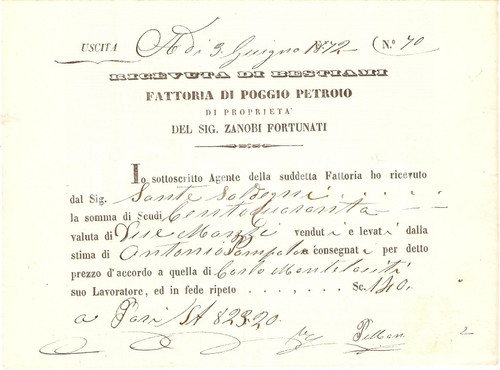 USCITA A dì 3. Giugno 1872 (N.º 70
RICEVUTA DI BESTIAMI
FATTORIA DI POGGIO PETROIO
DI PROPRIETA'
DEL SIG. ZANOBI FORTUNATI
Io sottoscritto Agente della suddetta Fattoria ho ricevuto
dal Sig. Sante
la somma di Scudi Centoquaranta
valuta di Due Manzi venduti e levati dalla
stima di Antonio consegnati per detto
prezzo d'accordo a quella di Carlo
suo Lavoratore, ed in fede ripeto . . . . . . Sc. 140.
a Pari